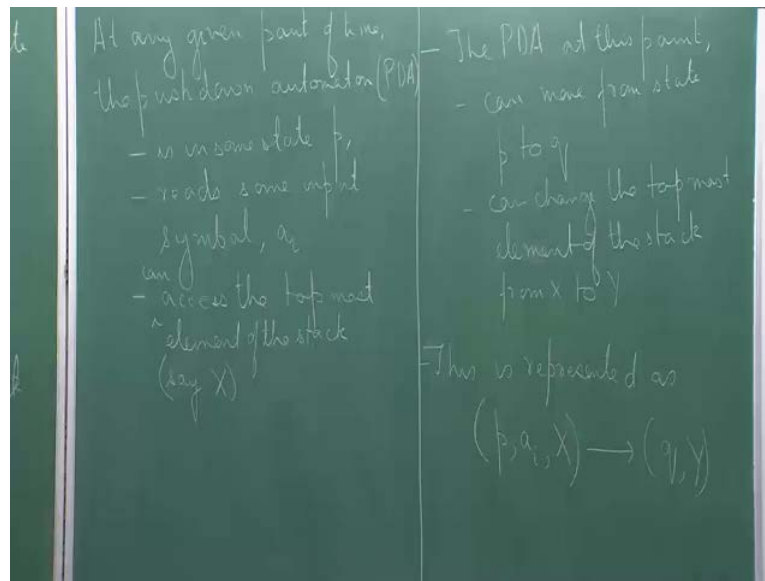 te
At any given point of time,
the push down automaton (PDA)
- is in some state p,
- reads some input
symbol, ai
can
- ^ access the top most
element of the stack
(say X)
k
- The PDA at this point,
- can move from state
p to q
- can change the top most
element of the stack
from X to Y
- This is represented as
(p, ai, X) → (q, Y)